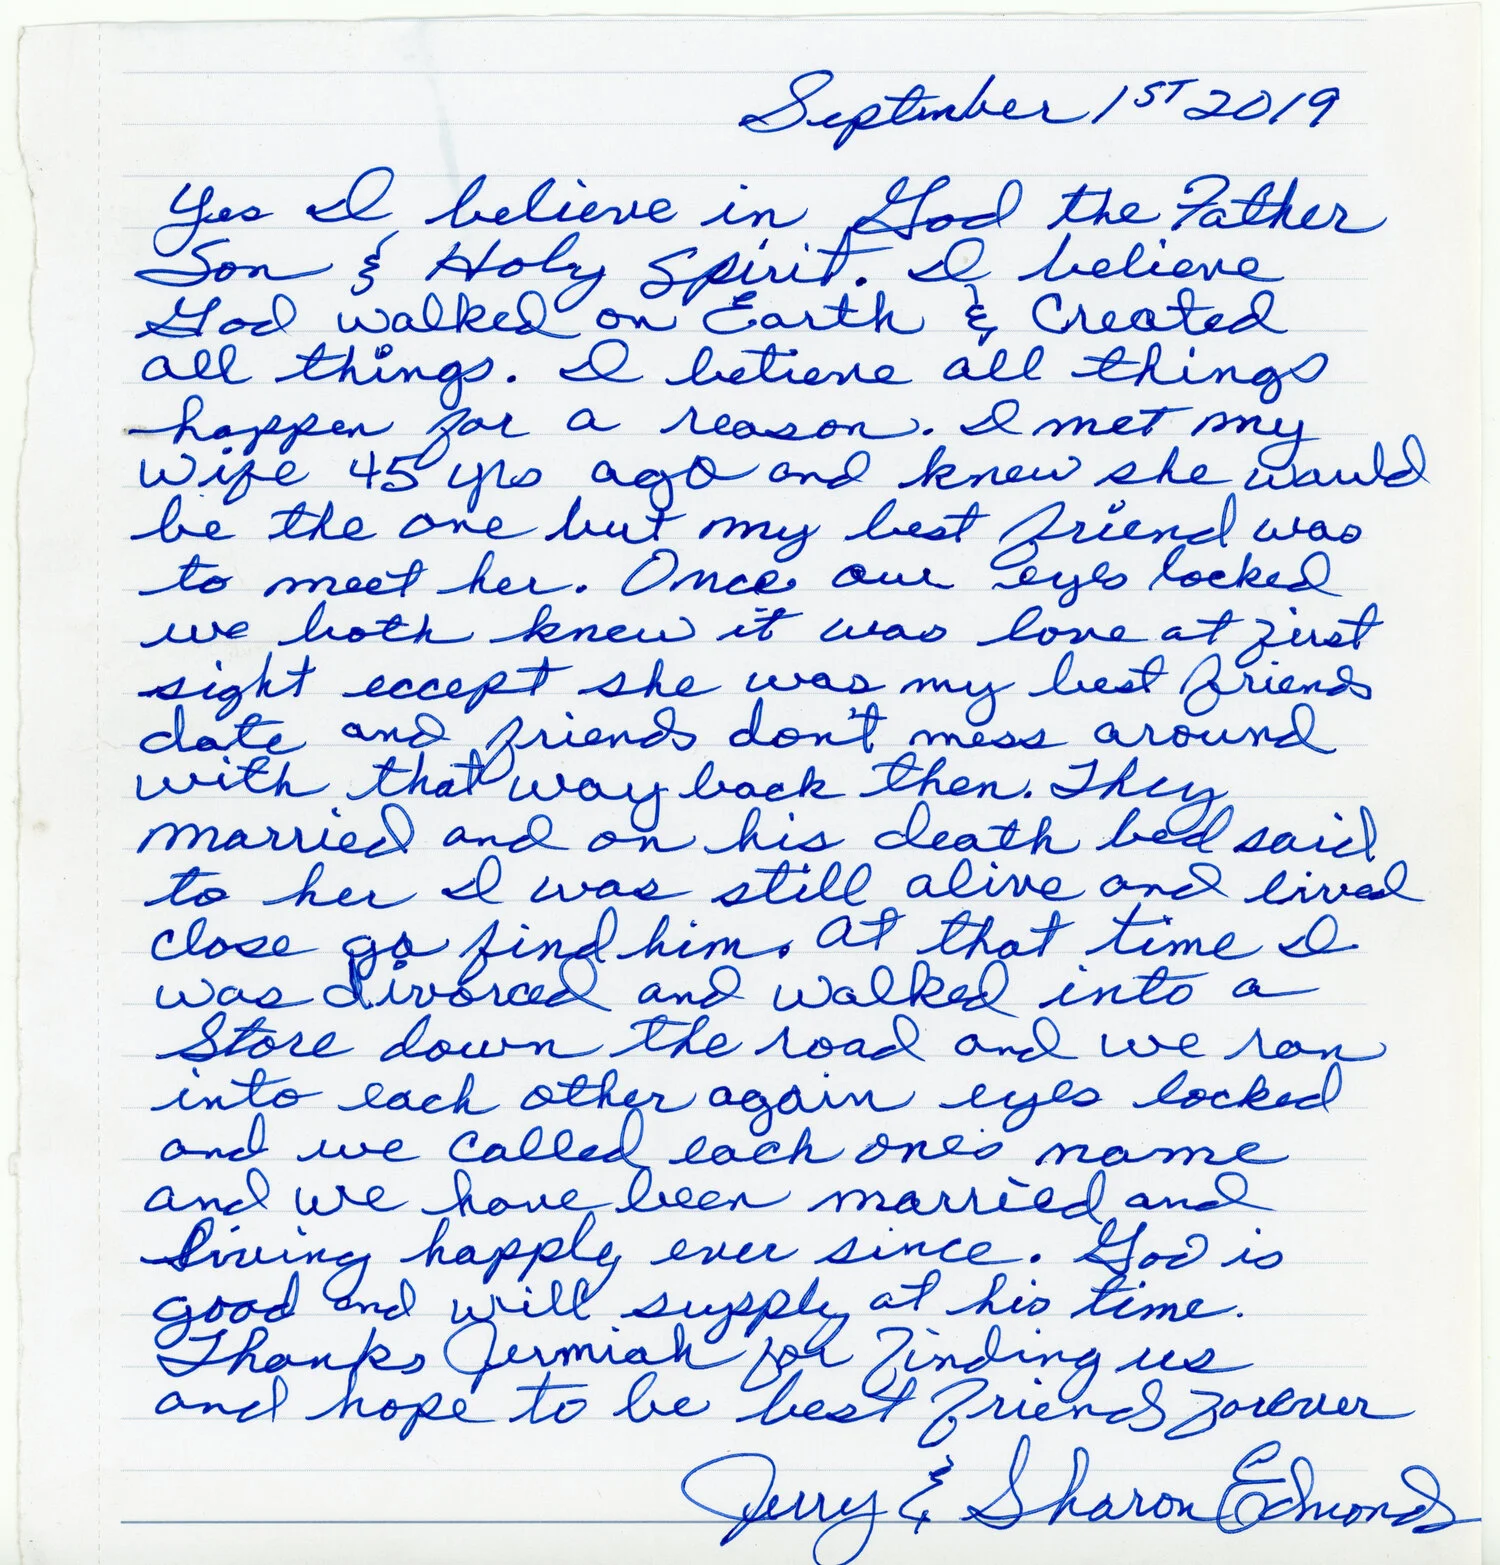 September 1ST 2019
Yes I believe in God the Father
Son & Holy Spirit. I believe
God walked on Earth & Created
all things. I believe all things
happen for a reason. I met my
wife 45 yrs ago and knew she would
be the one but my best friend was
to meet her. Once our eyes locked
we both knew it was love at first
sight eccept she was my best friends
date and friends don't mess around
with that way back then. They
married and on his death bed said
to her I was still alive and lived
close go find him. At that time I
was divorced and walked into a
Store down the road and we ran
into each other again eyes locked
and we called each one's name
and we have been married and
living happly ever since. God is
good and will supply at his time.
Thanks Jermiah for finding us
and hope to be best friends forever
Jerry & Sharon Edmonds